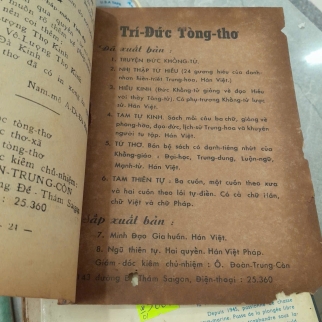 Trí-Đức Tòng-thơ
Đã xuất bản :
1. TRUYỆN ĐỨC KHỔNG-TỬ.
2. NHỊ THẬP TỨ HIẾU (24 gương hiếu của danh-
nhơn Biên-niết Trung-hoa. Hán Việt.
3. HIẾU KINH (học Khổng-tử giảng về đạo Hiếu
với thầy Tăng-tử. Có phụ-trương Khổng-tử lược
sử. Hán Việt.
4. TAM TỰ KINH. Sách mỗi câu ba chữ, giảng về
phong-hóa, đạo đức, lịch-sử Trung-hoa và khuyên
người tu tập. Hán Việt.
5. TỨ THƠ. Bốn bộ sách có danh-tiếng nhứt của
Khổng-giáo : Đại-học, Trung-dung, Luận-ngữ,
Mạnh-tử. Hán Việt.
6. TAM THIÊN TỰ. Ba cuốn, một cuốn theo xưa
và hai cuốn theo lối tự-điển. Có cả chữ Hán,
chữ Việt và chữ Pháp.
xuất bản :
7. Minh Đạo Gia huấn. Hán Việt.
8. Ngũ thiên tự. Hai quyển. Hán Việt Pháp.
Giám-đốc kiêm chủ-nhiệm : Ô. Đoàn-Trung-Còn
đường Đề-Thám Saigon, Điện-thoại : 25.360
Vô-Lượng Thọ
Thọ Kinh
đã có in
Nam-mô A-Di-Đà
tòng-thơ
thơ-xã
tòng-thơ
đốc kiêm chủ-nhiệm:
N-TRUNG-CÒN
Đề-Thám Saigon
: 25.360
24
Depuis 1945,